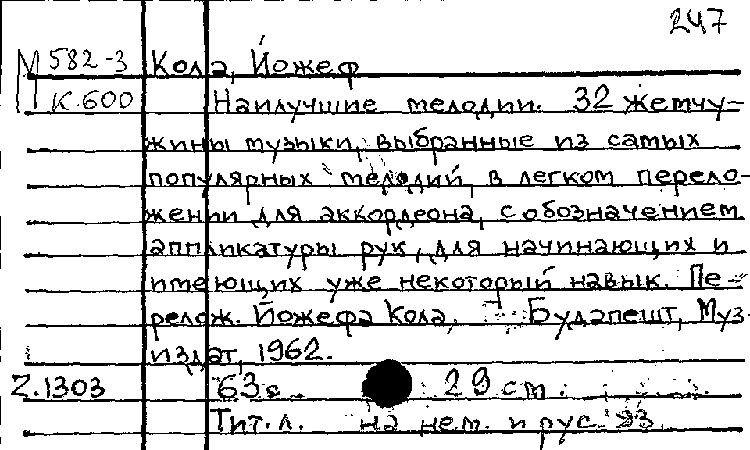 247
М 582-3 Кола, Йожеф
К.600 Наилучшие мелодии. 32 жемчу-
жины музыки, выбранные из самых
популярных мелодий, в легком перело-
жении для аккордеона, с обозначением
аппликатуры рук, для начинающих и
имеющих уже некоторый навык. Пе-
релож. Йожефа Кола, Будапешт, Муз.
издат, 1962.
Z.1303 63 с. 29 см.
Тит. л. на нем. и рус. яз.